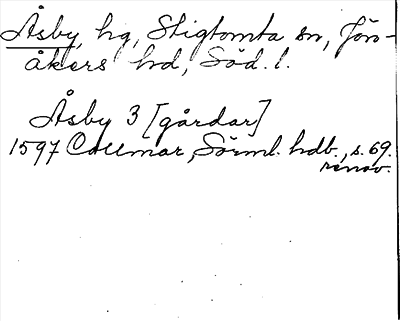 Åsby, hg, Stigtomta sn, Jön-
åkers hd, Söd. l.
Åsby 3 [gårdar]
1597 Collmar, Sörml. hdb., s. 69.
renov.